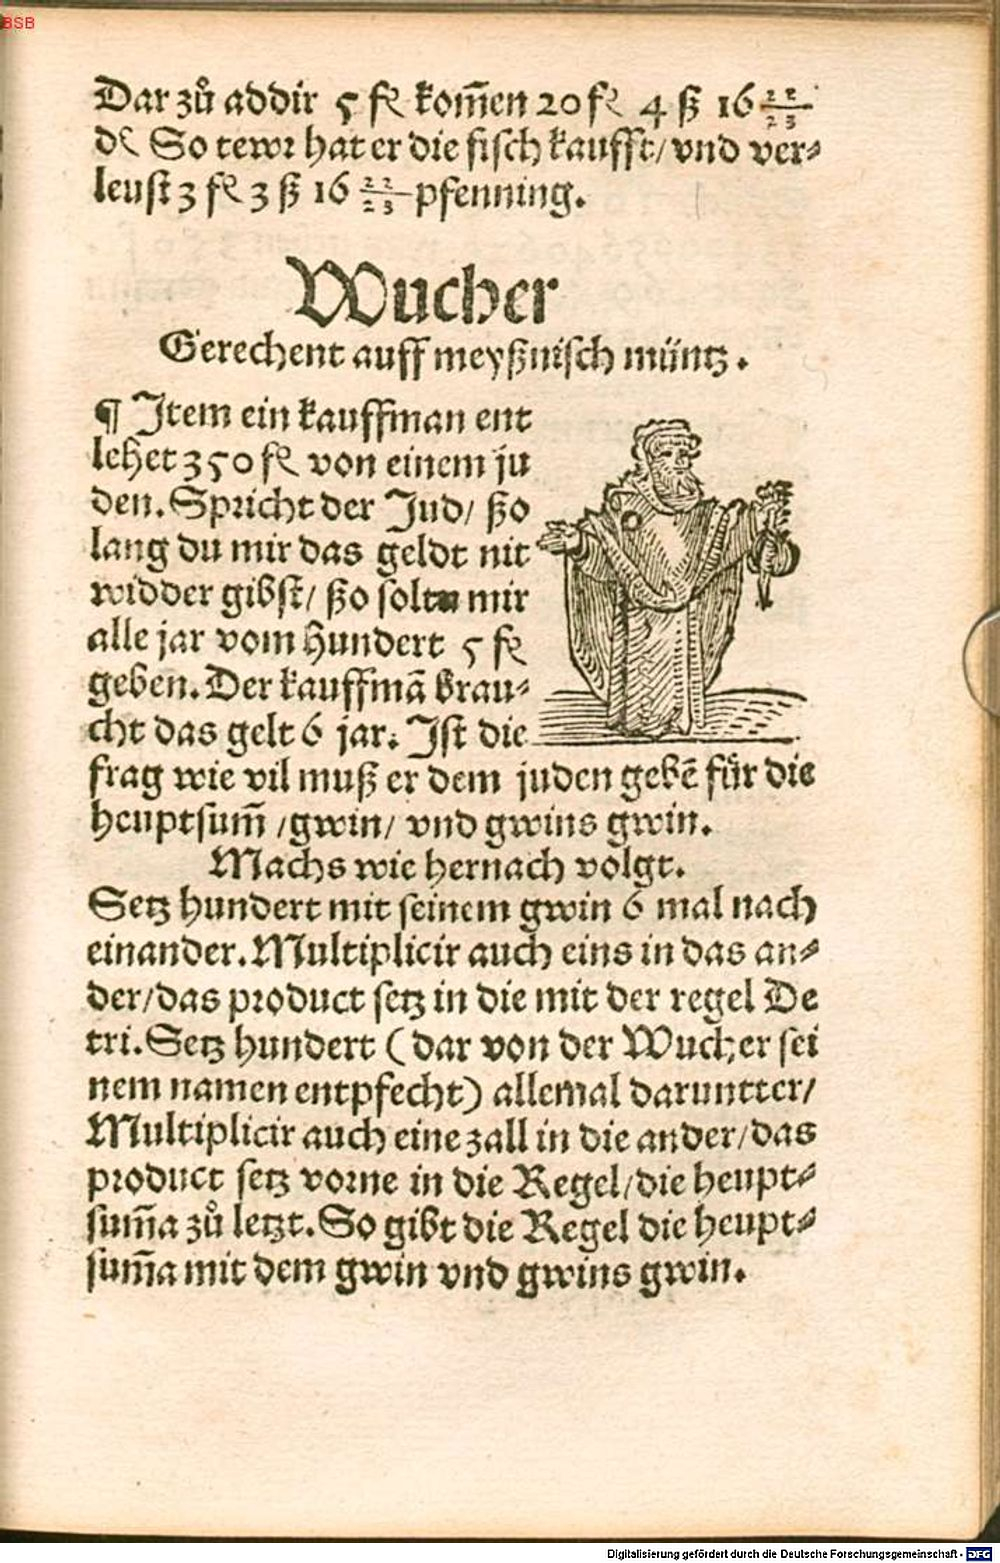 BSB
Dar zů addir 5 fl kom̃en 20 fl 4 ß 16 22/23
d₰ So tewr hat er die fisch kaufft/ vnd ver⸗
leust 3 fl 3 ß 16 22/23 pfenning.
Wucher
Gerechent auff meyßnisch müntz.
¶ Item ein kauffman ent
lehet 350 fl von einem ju
den. Spricht der Jud/ ßo
lang du mir das geldt nit
widder gibst/ ßo soltu mir
alle jar vom hundert 5 fl
geben. Der kauffmā brau⸗
cht das gelt 6 jar. Ist die
frag wie vil muß er dem juden gebē für die
heuptsum̃ /gwin/ vnd gwins gwin.
Machs wie hernach volgt.
Setz hundert mit seinem gwin 6 mal nach
einander. Multiplicir auch eins in das an⸗
der/das product setz in die mit der regel De
tri. Setz hundert (dar von der Wucher sei
nem namen entpfecht) allemal daruntter/
Multiplicir auch eine zall in die ander/das
product setz vorne in die Regel/die heupt⸗
sum̃a zů letzt. So gibt die Regel die heupt⸗
sum̃a mit dem gwin vnd gwins gwin.
Digitalisierung gefördert durch die Deutsche Forschungsgemeinschaft - DFG